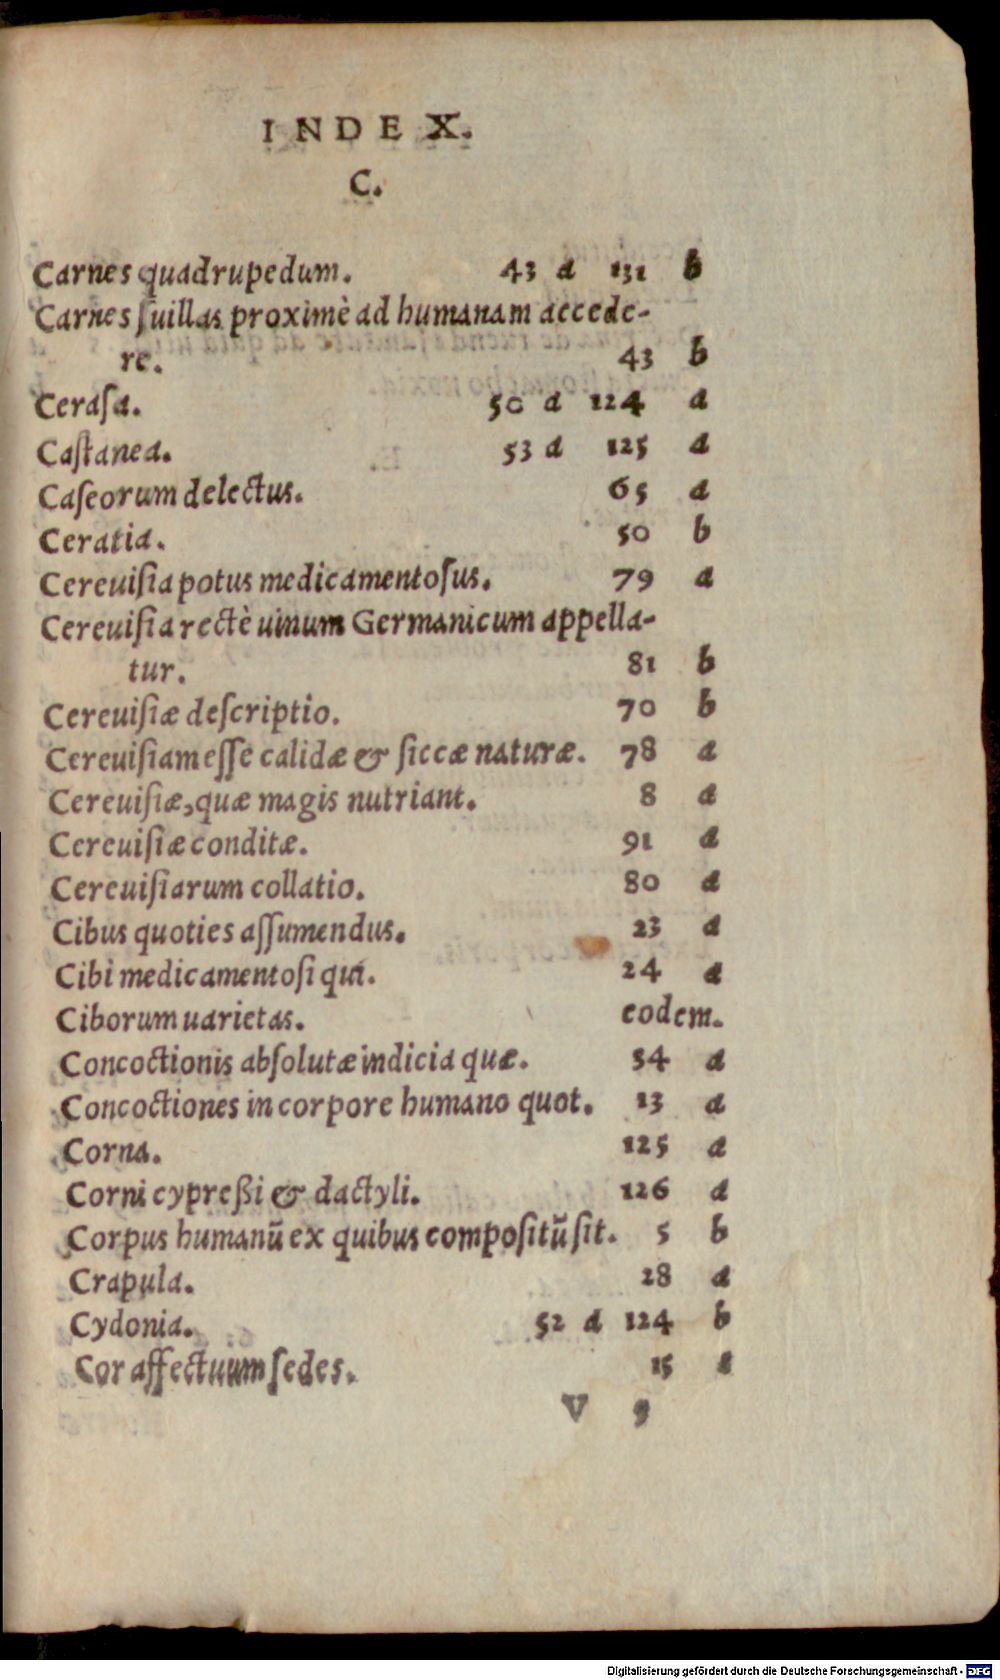 INDEX.
C.
Carnes quadrupedum. 43 a 131 b
Carnes ſuillas proximè ad humanam accede-
re. 43 b
Ceraſa. 50 a 124 a
Caſtanea. 53 a 125 a
Caſeorum delectus. 65 a
Ceratia. 50 b
Cereuiſia potus medicamentoſus. 79 a
Cereuiſia rectè uinum Germanicum appella-
tur. 81 b
Cereuiſiæ deſcriptio. 70 b
Cereuiſiam eſſe calidæ & ſiccæ naturæ. 78 a
Cereuiſiæ, quæ magis nutriant. 8 a
Cereuiſiæ conditæ. 91 a
Cereuiſiarum collatio. 80 a
Cibus quoties aſſumendus. 23 a
Cibi medicamentoſi qui. 24 a
Ciborum uarietas. eodem.
Concoctionis abſolutæ indicia quæ. 54 a
Concoctiones in corpore humano quot. 13 a
Corna. 125 a
Corni cypreßi & dactyli. 126 a
Corpus humanũ ex quibus compoſitũ ſit. 5 b
Crapula. 28 a
Cydonia. 52 a 124 b
Cor affectuum ſedes. 15 a
V 5
Digitalisierung gefördert durch die Deutsche Forschungsgemeinschaft - DFG